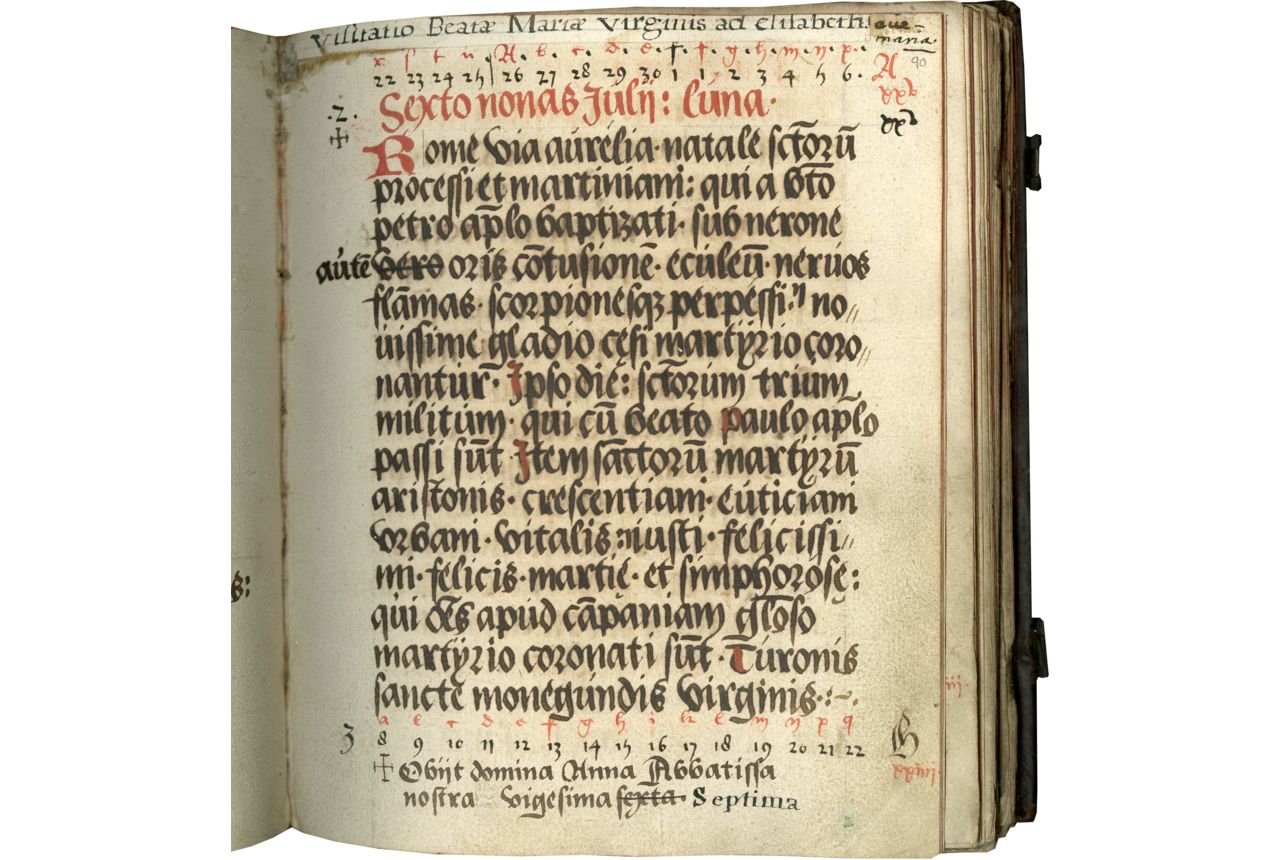 Visitatio Beatæ Mariæ Virginis ad elisabeth: ave
maria.
x s t u A. b. c. d. e. f. f. g. h. m. n. p. 90
22 23 24 25 26 27 28 29 30 1 1 2 3 4 5 6. A
.2. Sexto nonas Julij: luna. xxv
Rome via aurelia·natale sctoꝝ̄ xxv
processi et martiniani: qui a bt̄o
petro ap̄lo baptizati· sub nerone
autē vero oris cōtusionē· eculeū·neruos
flāmas·scorpionesqꝫ perpessi: no//
uissime gladio cęsi martÿrio coro//
nantur· Ipso die: sctōrum trium
militum· qui cū beato paulo ap̄lo
passi sūt· Item sanctorū martÿrū
aristonis· crescentiani· euticiani
vrbani· vitalis: iusti· felicissi//
mi· felicis·martie· et simphorose:
qui oēs apud cāpaniam glōso
martÿrio coronati sūt· Turonis
sancte monegundis virginis·:~
a b c d e f g h i k l m n p q
3 8 9 10 11 12 13 14 15 16 17 18 19 20 21 22 G
Obijt domina Anna Abbatissa
nostra vigesima sexta· Septima
s:
iii